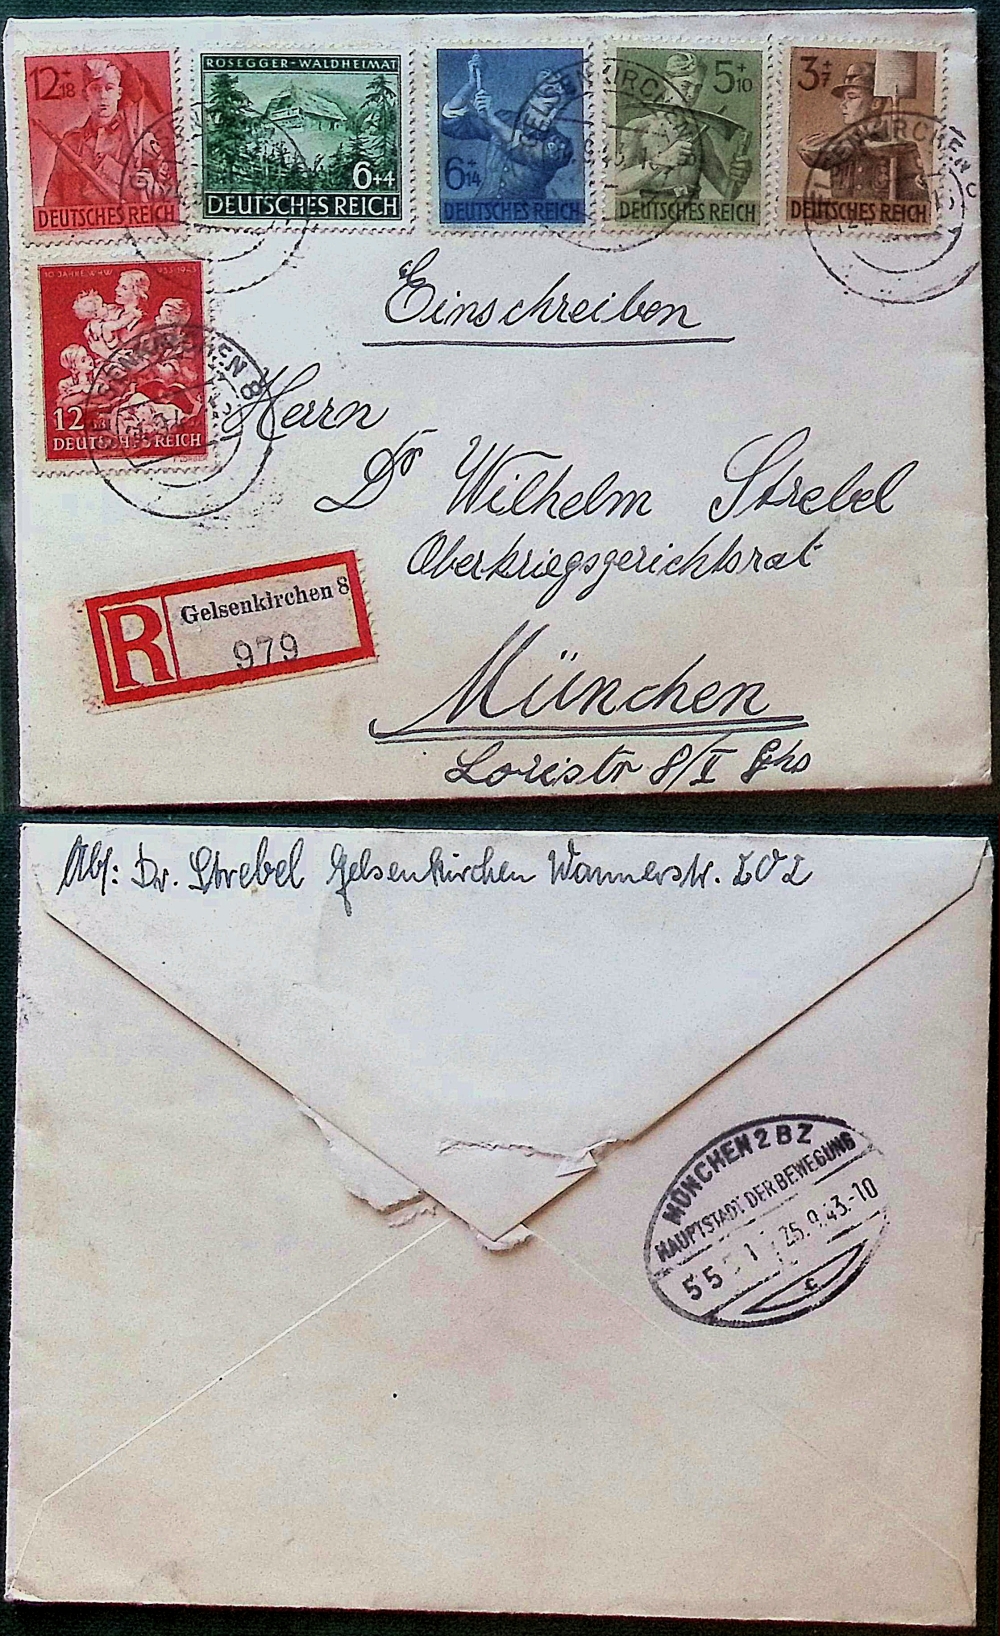 12+18
DEUTSCHES REICH
ROSEGGER-WALDHEIMAT
6+4
DEUTSCHES REICH
6+14
DEUTSCHES REICH
5+10
DEUTSCHES REICH
3+7
DEUTSCHES REICH
GELSENKIRCHEN
Einschreiben
10 JAHRE NHW 1933-1943
12
DEUTSCHES REICH
GELSENKIRCHEN 8
Herrn
Dr Wilhelm Strebel
Oberkriegsgerichtsrat
R Gelsenkirchen 8
979
München
Loristr 8/I Ghs
Abs: Dr. Strebel Gelsenkirchen Wannerstr. 202
MÜNCHEN 2 BZ
HAUPTSTADT DER BEWEGUNG
26.9.43.-10
c